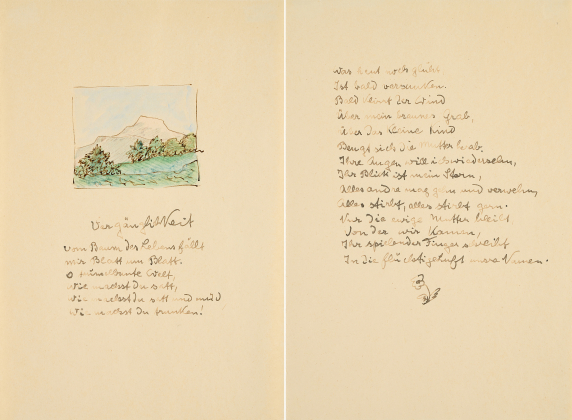 Vergänglichkeit
Vom Baum des Lebens fällt
mir Blatt um Blatt.
O Welt,
wie machst du satt,
wie machst du satt und müd,
wie machst du trunken!
Was heut noch glüht
Ist bald versunken.
Bald klirrt der Wind
Über mein braunes Grab,
Über das kleine Kind
Beugt sich die Mutter herab.
Ihre Augen will ich wiedersehn,
Ihr Blick ist mein Stern,
Alles andre mag gehn und verwehn,
Alles stirbt, alles stirbt gern.
Nur die ewige Mutter bleibt,
Von der wir kamen,
Ihr spielender Finger schreibt
In die flüchtige Luft unsre Namen.